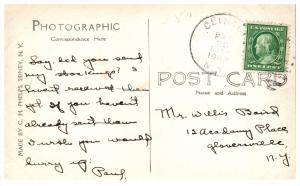 PHOTOGRAPHIC
Correspondence Here
MADE BY C. H. PHELPS, SIDNEY, N.Y.
Say did you send
my stockings? I
haven't received them
yet if you haven't
already sent them
I wish you would
hurry up.
Paul
POST CARD
Name and Address
Mr. Willis Baird
12 Academy Place
Gloversville
N.Y.